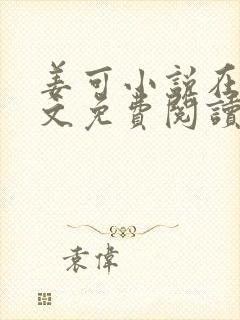 姜可小说在
文免費閱讀
袁偉